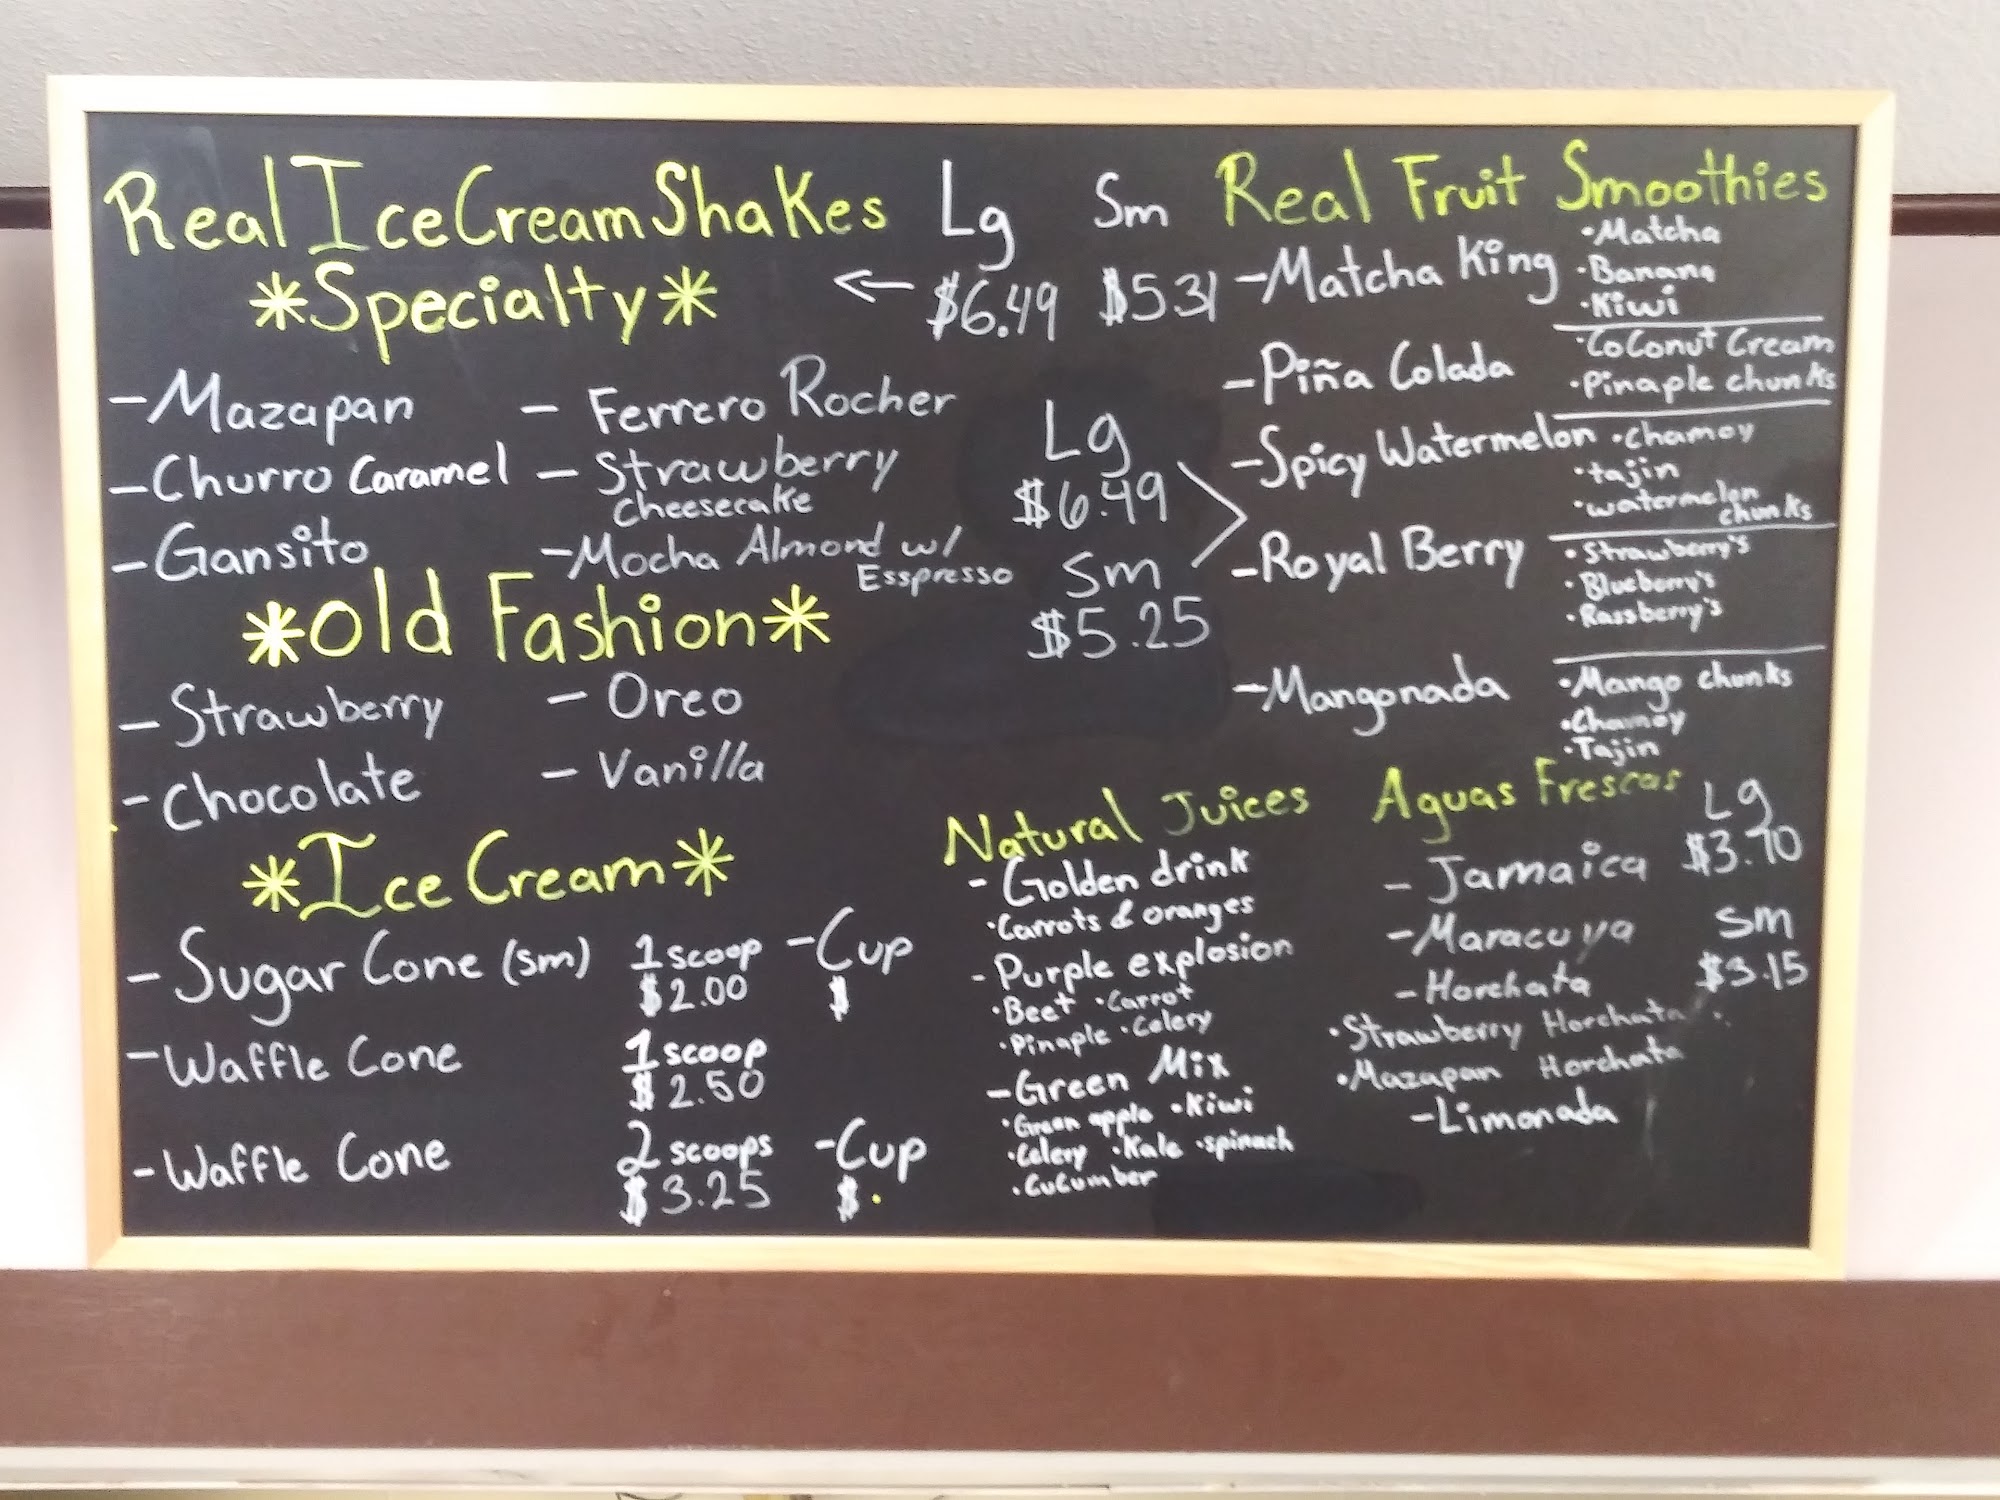 Real Ice Cream Shakes
*Specialty*
Lg Sm
← $6.49 $5.31
- Mazapan
- Churro Caramel
- Gansito
- Ferrero Rocher
- Strawberry
cheesecake
- Mocha Almond w/
Esspresso
*Old Fashion*
- Strawberry
- Chocolate
- Oreo
- Vanilla
*Ice Cream*
- Sugar Cone (sm) 1 scoop - Cup
$2.00 $
- Waffle Cone 1 scoop
$2.50
- Waffle Cone 2 scoops - Cup
$3.25 $.
Lg
$6.49
Sm
$5.25
Real Fruit Smoothies
- Matcha King
• Matcha
• Banana
• Kiwi
- Piña Colada
• CoConut Cream
• Pinaple chunks
- Spicy Watermelon
• Chamoy
• tajin
• watermelon
chunks
- Royal Berry
• Strawberry's
• Blueberry's
• Rassberry's
- Mangonada
• Mango chunks
• Chamoy
• Tajin
Natural Juices
- Golden drink
• Carrots & oranges
- Purple explosion
• Beet • Carrot
• Pinaple • Celery
- Green Mix
• Green apple • Kiwi
• Celery • Kale • spinach
• Cucumber
Aguas Frescas
- Jamaica
- Maracuya
- Horchata
• Strawberry Horchata
• Mazapan Horchata
- Limonada
Lg
$3.70
Sm
$3.15